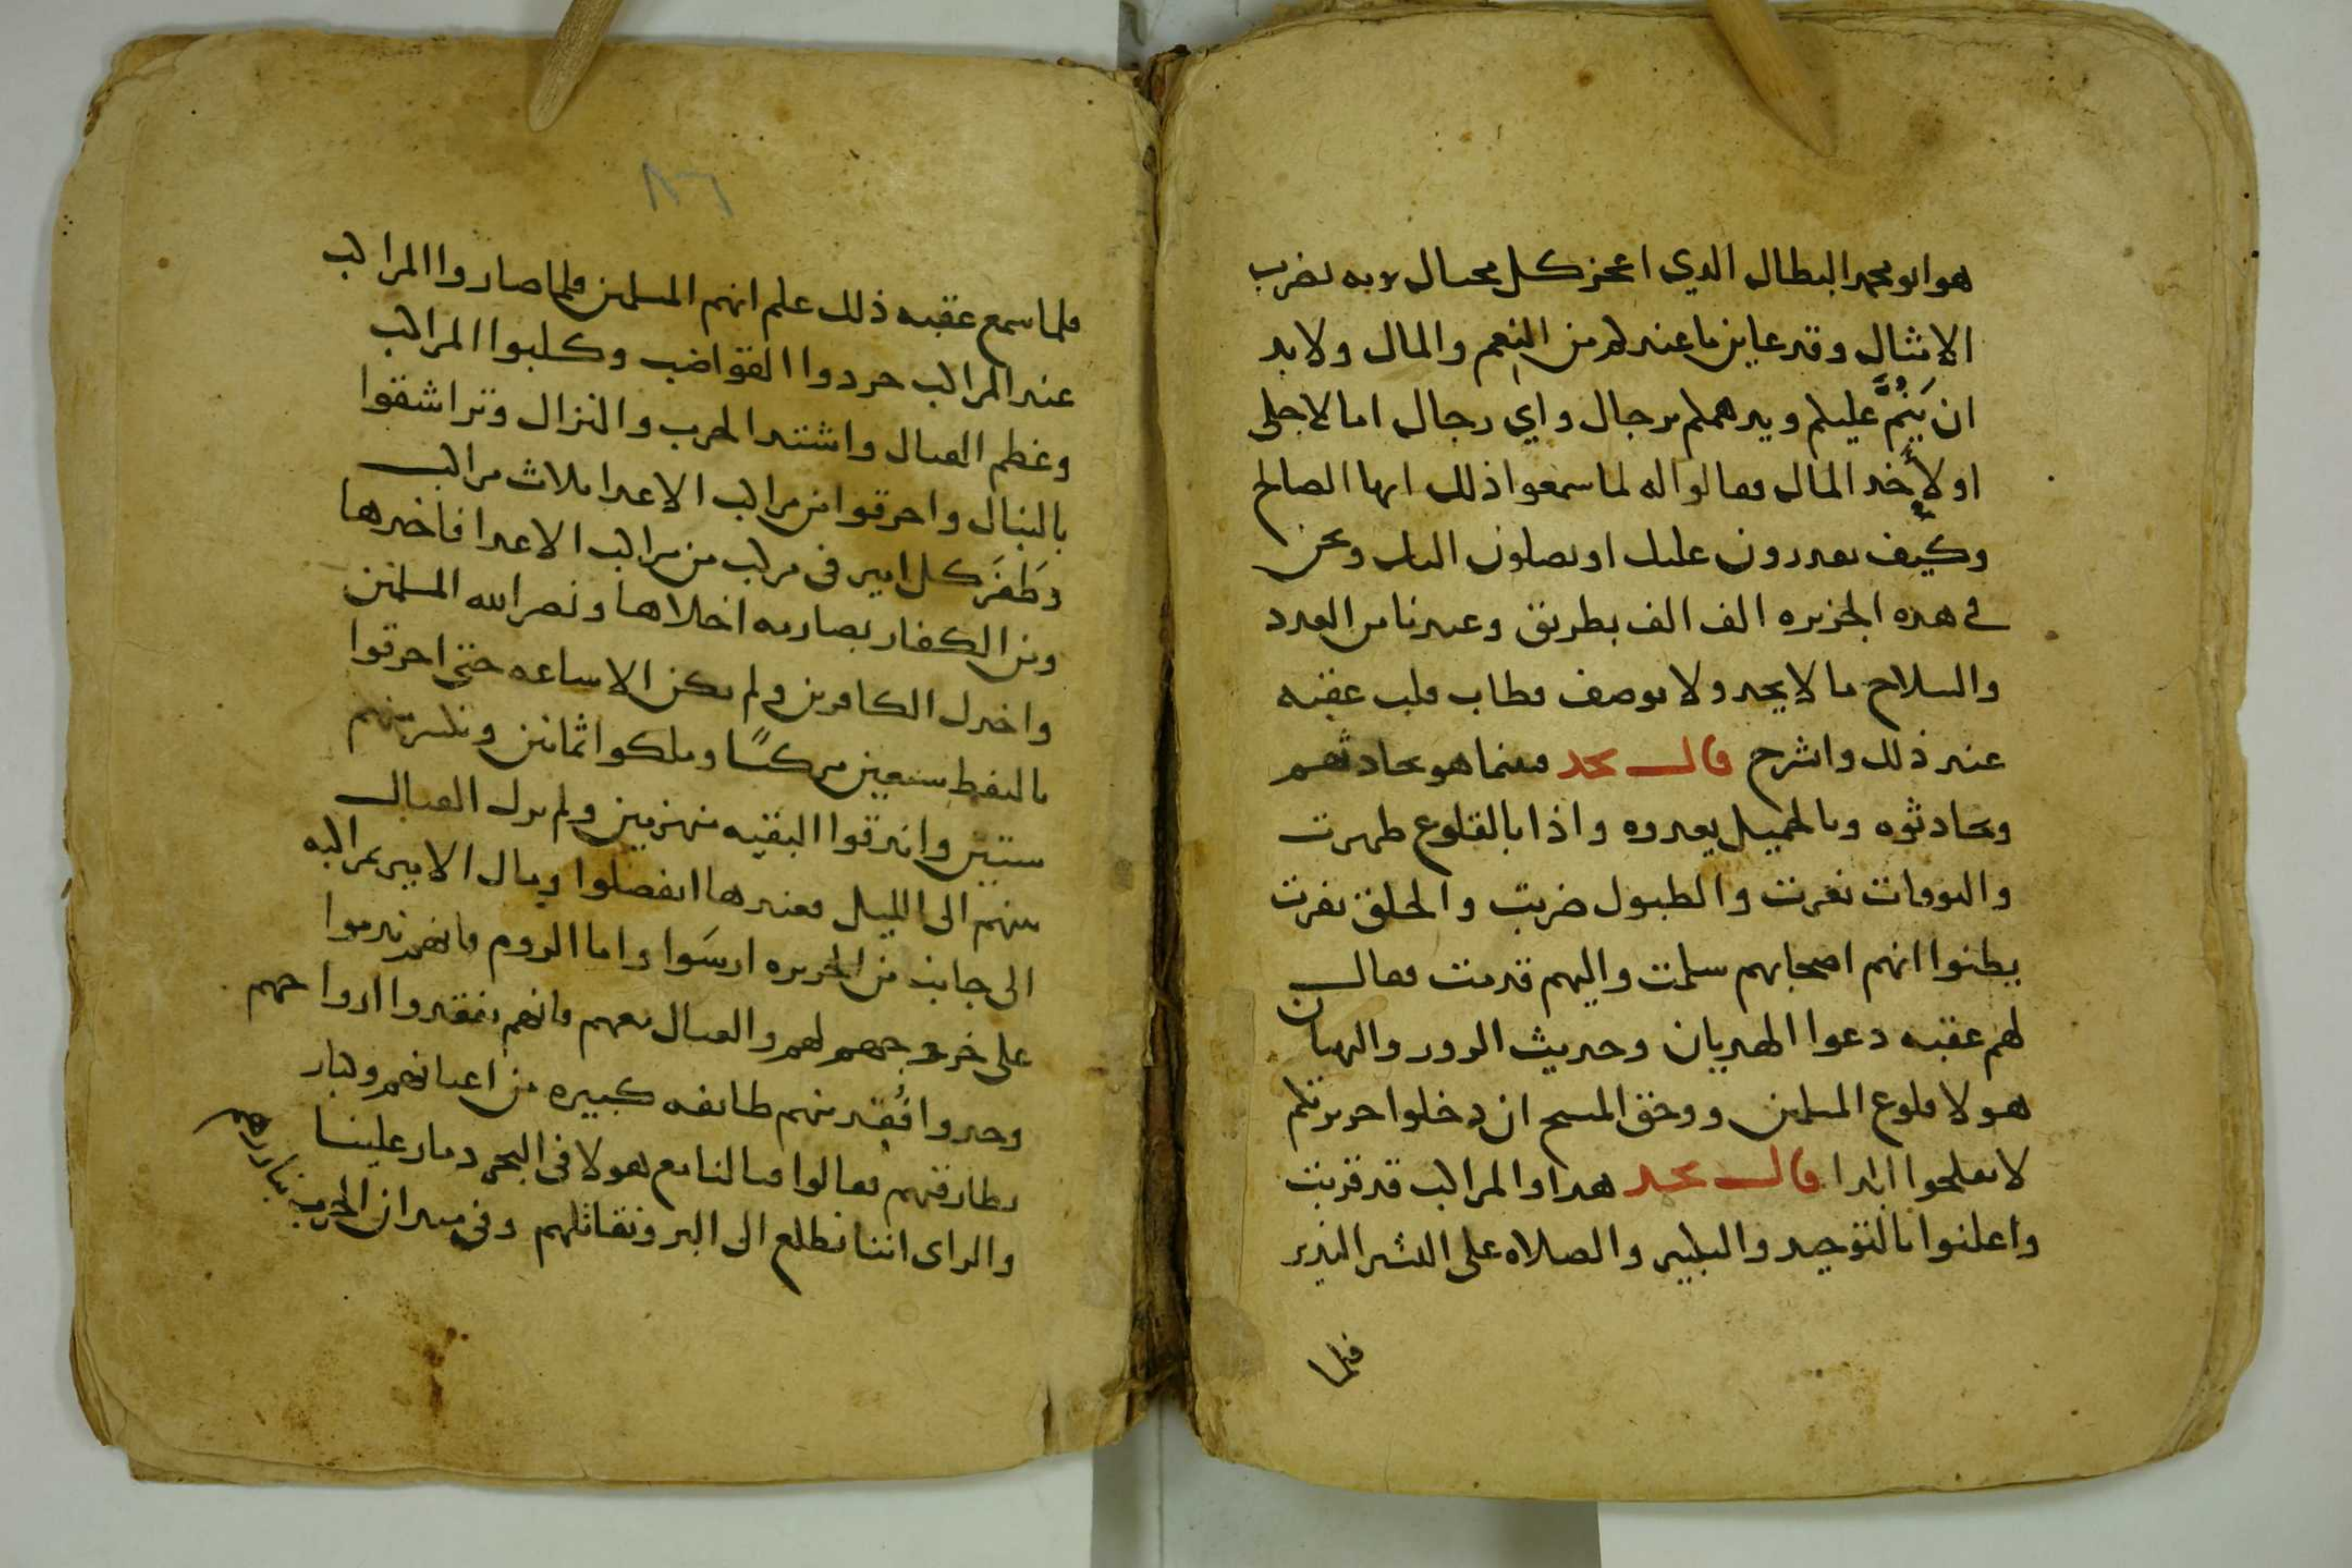 هو ابو محمد البطال الدي اعجز كل محتال وبه تضرب
الامثال وقد عاين ما عندكم من النعم والمال ولا بد
ان يَنِمَّ عليكم ويدهمكم برجال واي رجال اما لاجلي
او لأخد المال فقالوا له لما سمعوا ذلك ايها الصالح
وكيف يقدرون عليك او يصلون اليك ونحن
في هده الجزيره الف الف بطريق وعندنا من العدد
والسلاح ما لا يحد ولا يوصف فطاب قلب عقبه
عند ذلك وانشرح قال نجد فبينما هو يحادثهم
ويحادثوه وبالجميل يعدوه واذا بالقلوع ظهرت
والبوقات نعرت والطبول ضربت والخلق نفرت
يظنوا انهم اصحابهم سلمت واليهم قدمت فقال
لهم عقبه دعوا الهديان وحديث الزور والبهتان
هولا قلوع المسلمين ووحق المسيح ان دخلوا جزيرتكم
لا تفلحوا ابدا قال نجد هدا والمراكب قد قربت
واعلنوا بالتوحيد والتكبير والصلاه على البشير النذير
فلما
٨٦
فلما سمع عقبه ذلك علم انهم المسلمين فلما صاروا المراكب
عند المراكب جردوا القواضب وكلبوا المراكب
وعظم القتال واشتد الحرب والنزال وتراشقوا
بالنبال واحرقوا من مراكب الاعدا ثلاث مراكب
وطَفَرَ كل امير في مركب من مراكب الاعدا فاخدها
ومن الكفار بصارمه اخلاها ونصر الله المسلمين
واخدل الكافرين ولم يكن الا ساعه حتى احرقوا
بالنفط سبعين مركبًا وملكوا ثمانين وتكسر منهم
ستين وانزقوا البقيه منهزمين ولم يزل القتال
بينهم الى الليل فعندها انفصلوا ومال الامير بمراكبه
الى جانب من الجزيره ارسَوا واما الروم فانهم ندموا
على خروجهم لهم والقتال معهم فانهم تفقدوا ارواحهم
وجدوا فُقد منهم طايفه كبيره من اعيانهم وكبار
بطارقتهم فقالوا قتالنا مع هولا في البحر دمار علينا
والراى اننا نطلع الى البر ونقاتلهم وفي ميدان الحرب نبارزهم